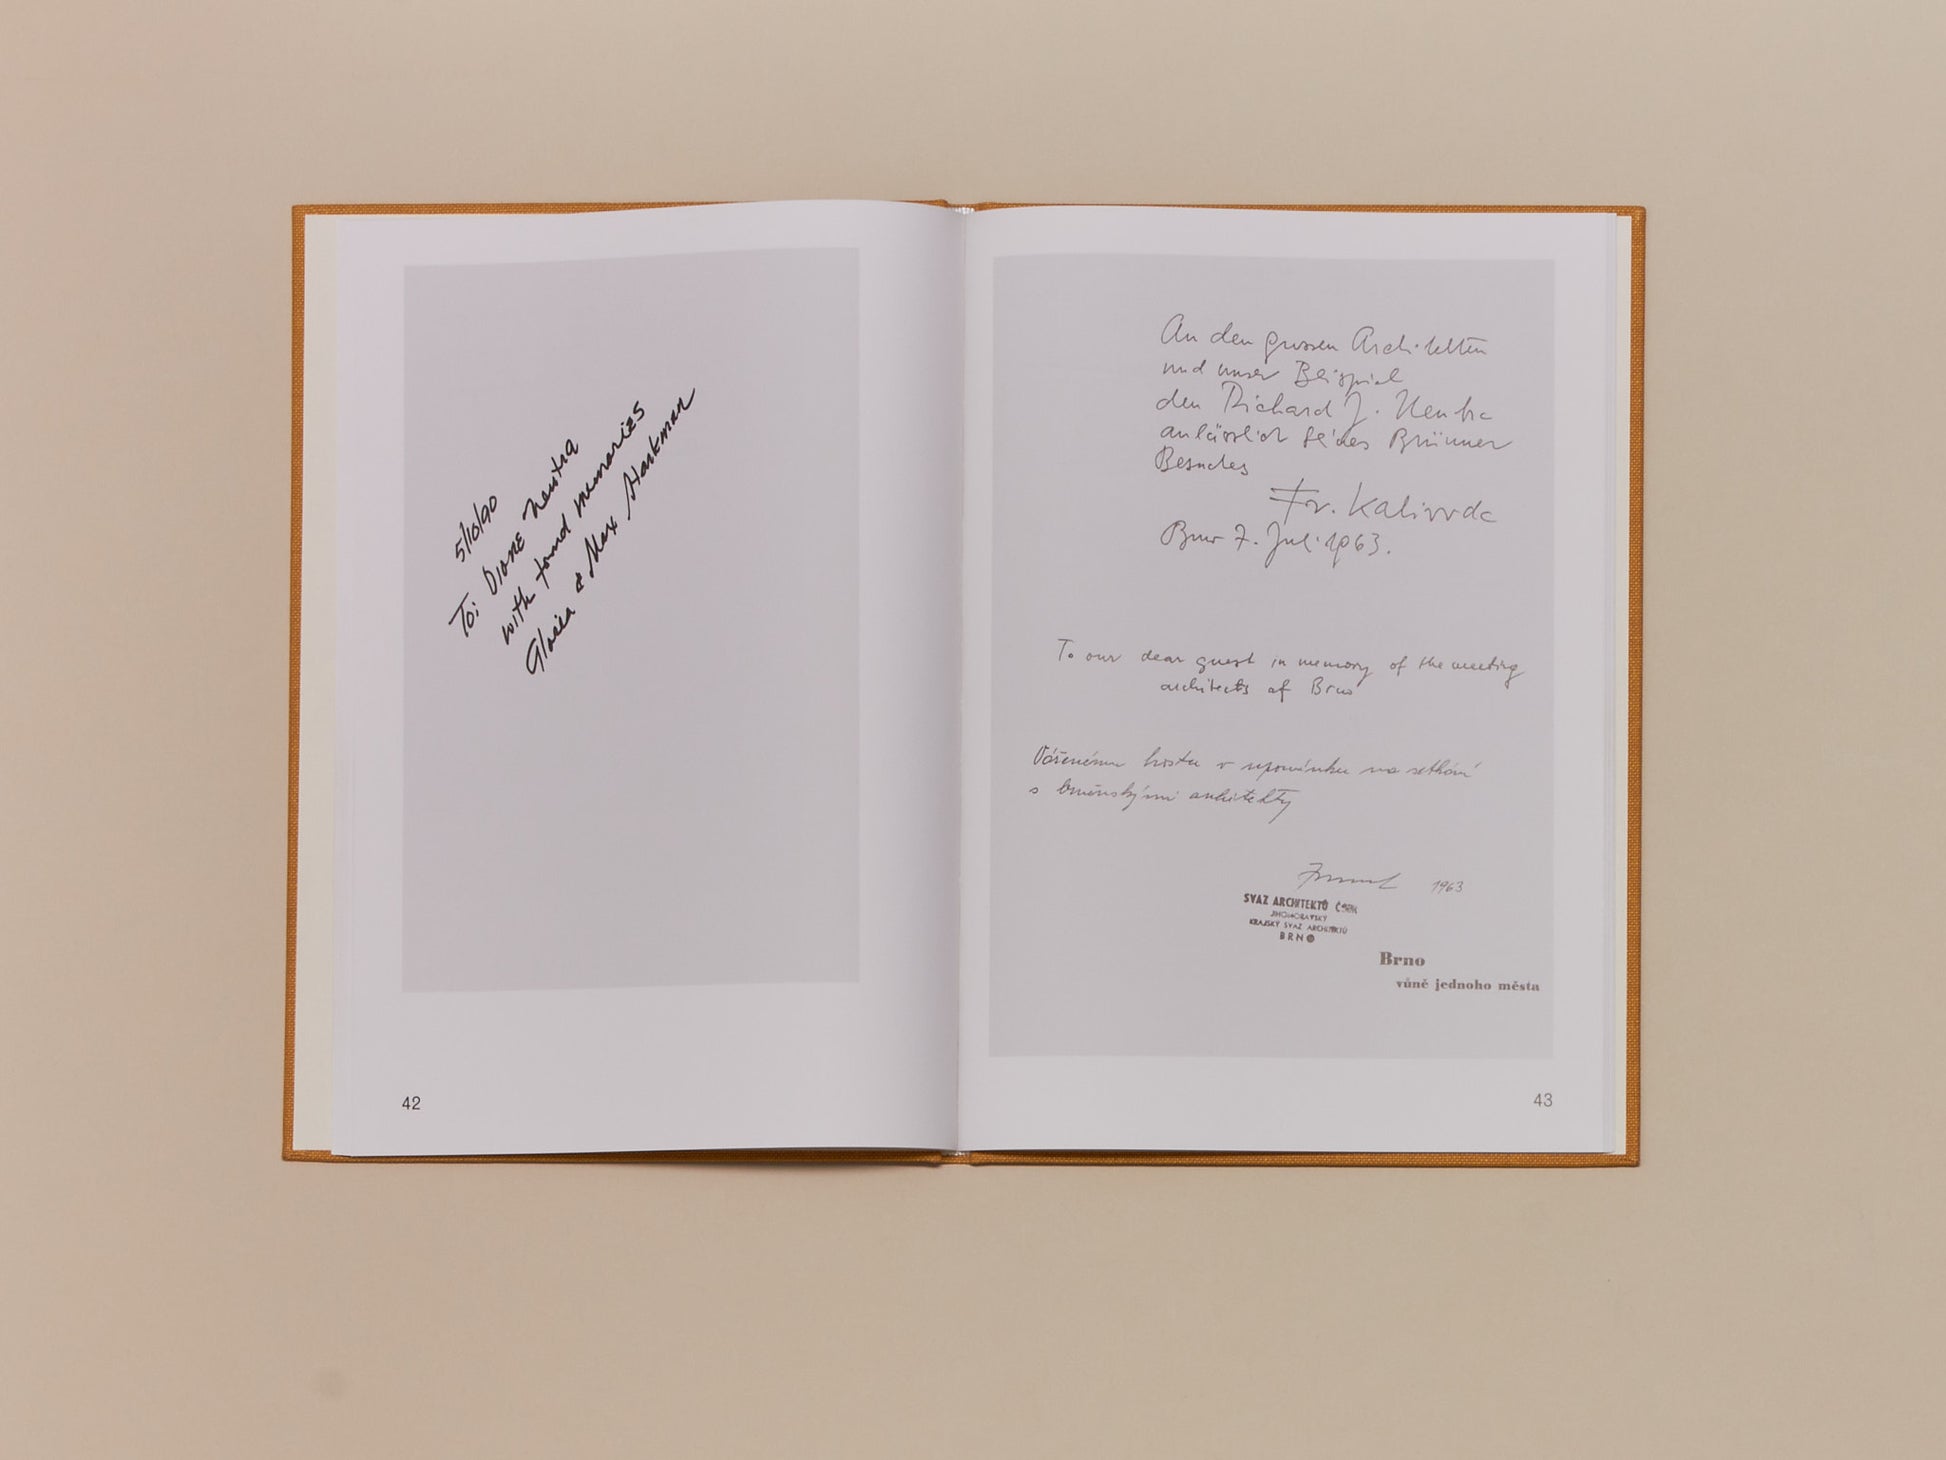 5/10/90
To: Dione Neutra
with fond memories
Gloria & Max Harkman
42
An den grossen Architekten
und unser Beispiel
den Richard J. Neutra
anlässlich seines Brünner
Besuches
Fr. Kalivoda
Brno 7. Juli 1963.
To our dear guest in memory of the meeting
architects of Brno
Váženému hostu v upomínku na setkání
s brněnskými architekty
1963
SVAZ ARCHITEKTŮ
JIHOMORAVSKÝ
KRAJSKÝ SVAZ ARCHITEKTŮ
BRNO
Brno
vůně jednoho města
43